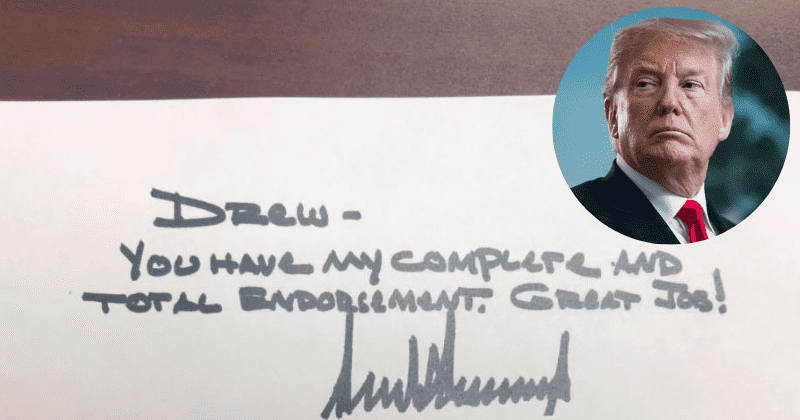 DREW -
YOU HAVE MY COMPLETE AND
TOTAL ENDORSEMENT. GREAT JOB!